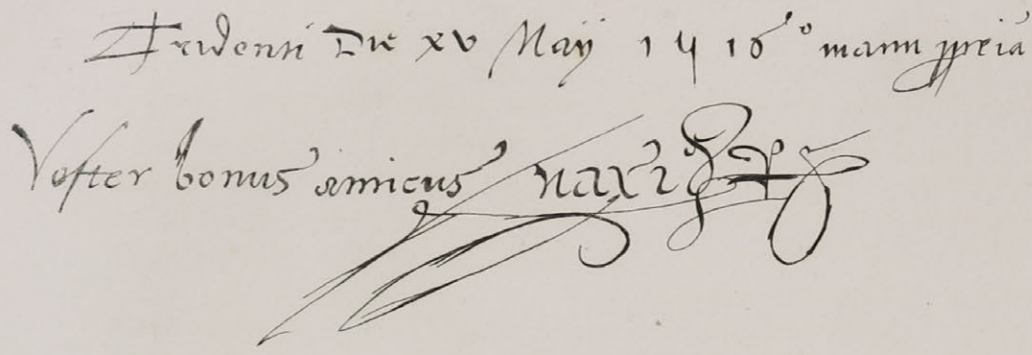 Tridenti Die xv Maÿ 1516° manu ppria
Vester bonus amicus maxi